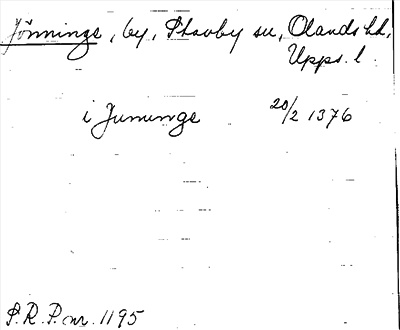 Jönninge, by, Stavby sn, Olands hd,
Upps. l.
i Junninge 20/2 1376
S.R.P. nr. 1195